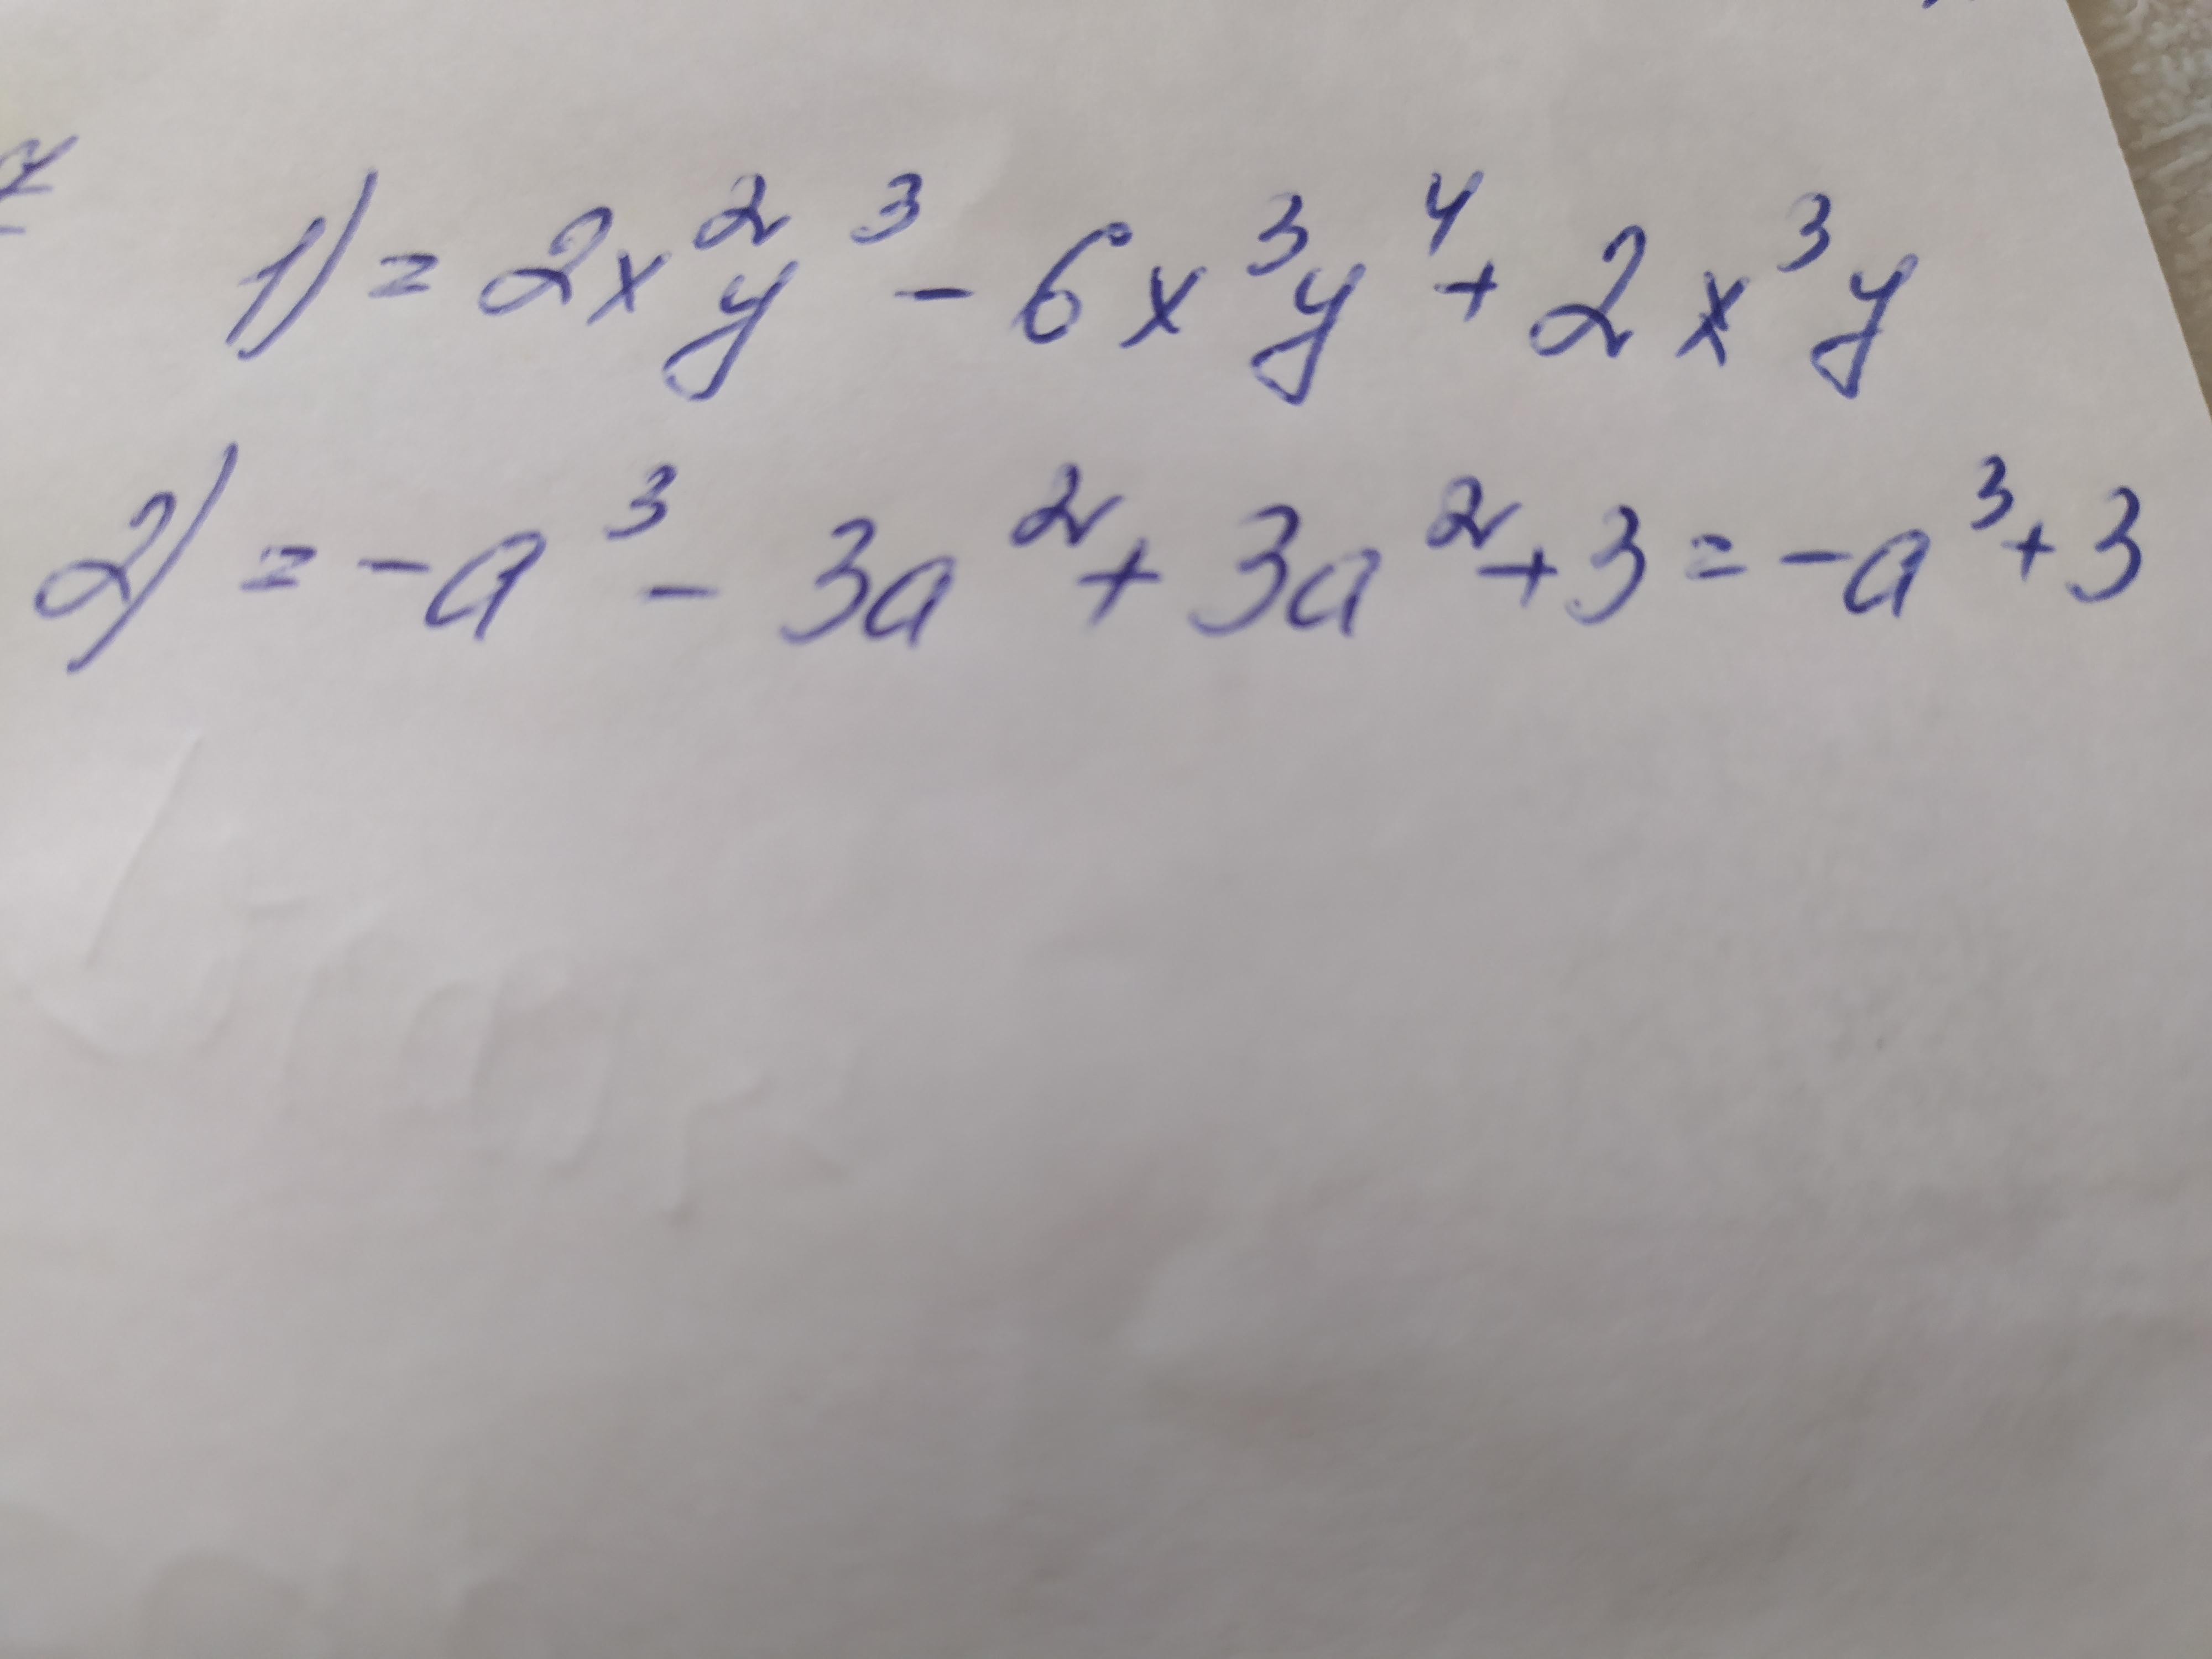 1) = 2x²y³ - 6x³y⁴ + 2x³y
2) = -a³ - 3a² + 3a² + 3 = -a³ + 3